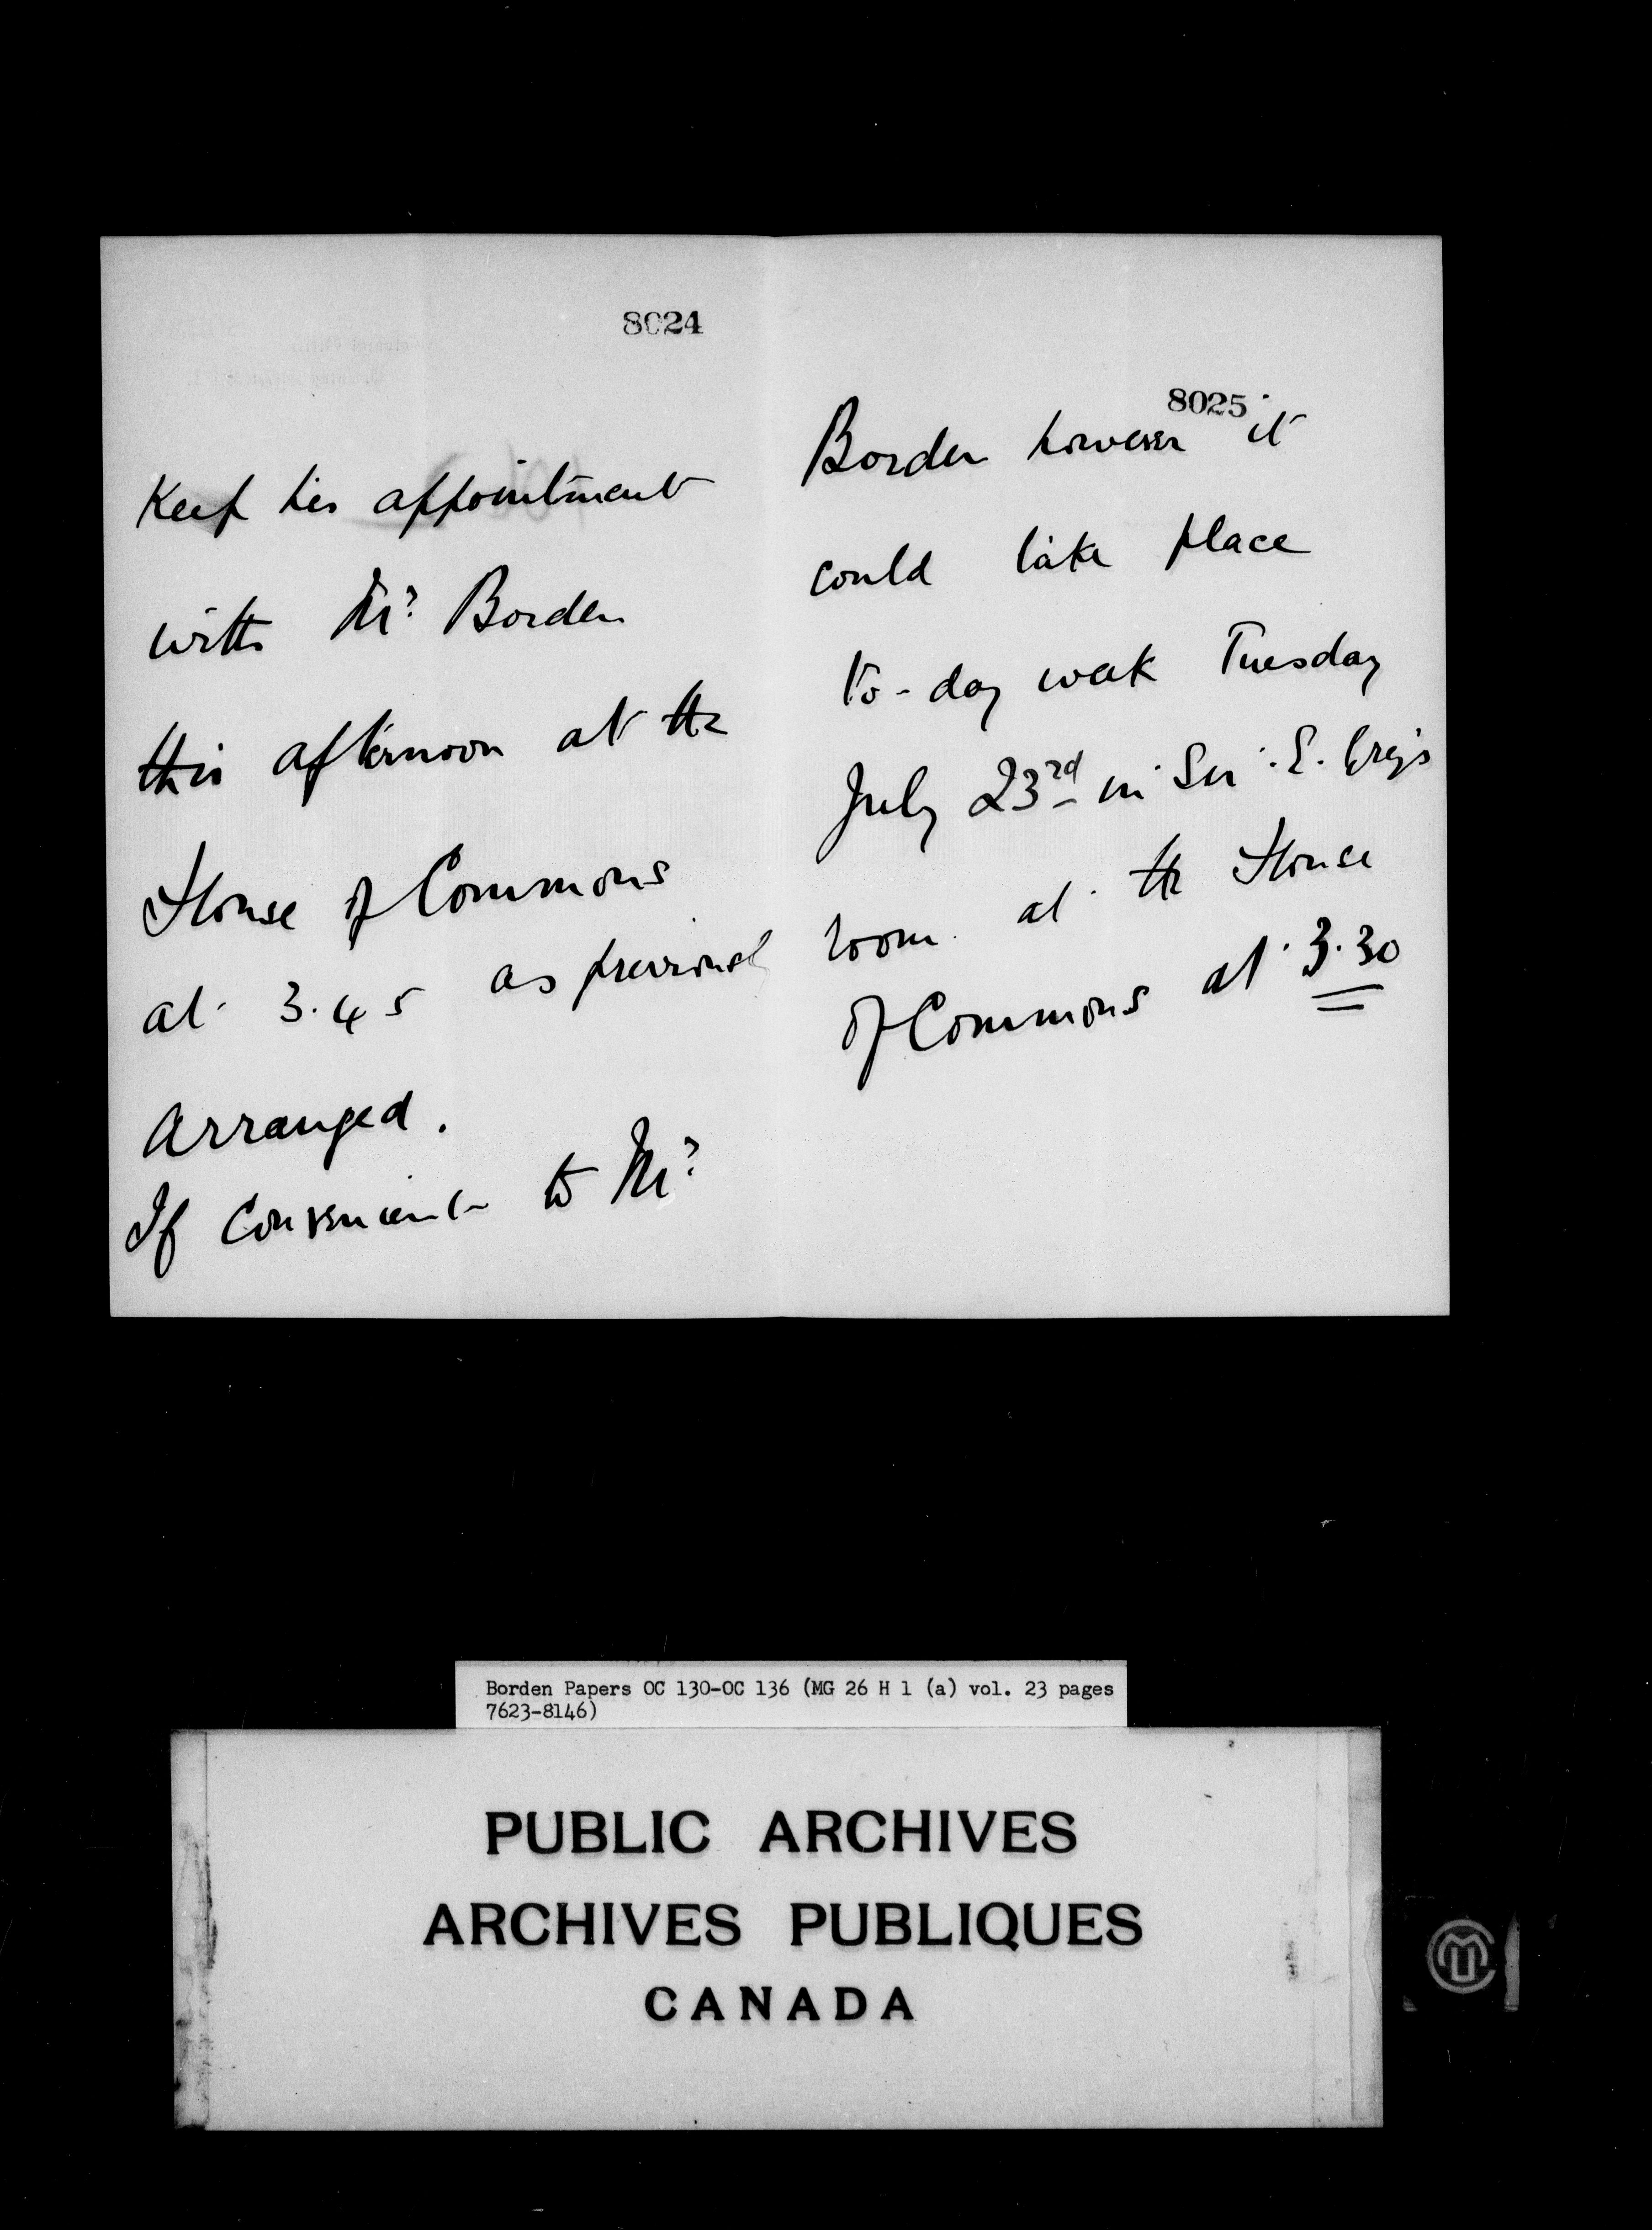 8024
Keep his appointment
with Mr Borden
this afternoon at the
House of Commons
at 3.45 as previously
arranged.
If convenient to Mr
8025
Borden however it
could take place
to-day week Tuesday
July 23rd in Sir E. Grey's
room at the House
of Commons at 3.30
Borden Papers OC 130-OC 136 (MG 26 H 1 (a) vol. 23 pages
7623-8146)
PUBLIC ARCHIVES
ARCHIVES PUBLIQUES
CANADA